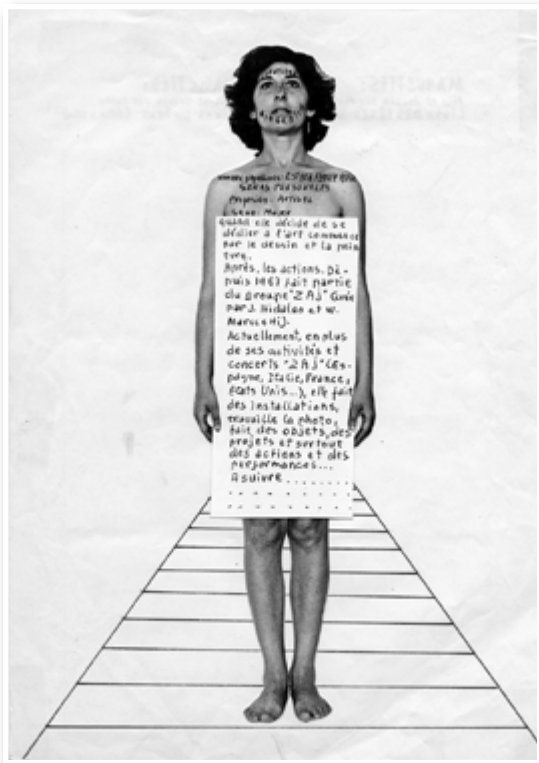 SEÑAS PERSONALES
Profesión: Artista
Sexo: Mujer
Quand elle décide de se
dédier a l'art commence
par le dessin et la pein
ture.
Après, les actions. De-
puis 1967 fait partie
du groupe "ZAJ" Créé
par J. Hidalgo et W.
Marchetti.
Actuellement, en plus
de ses activités et
concerts "ZAJ" (Es-
pagne, Italie, France,
États Unis...), elle fait
des installations,
travaille la photo,
fait des objets, des
projets et surtout
des actions et des
performances...
A suivre ........